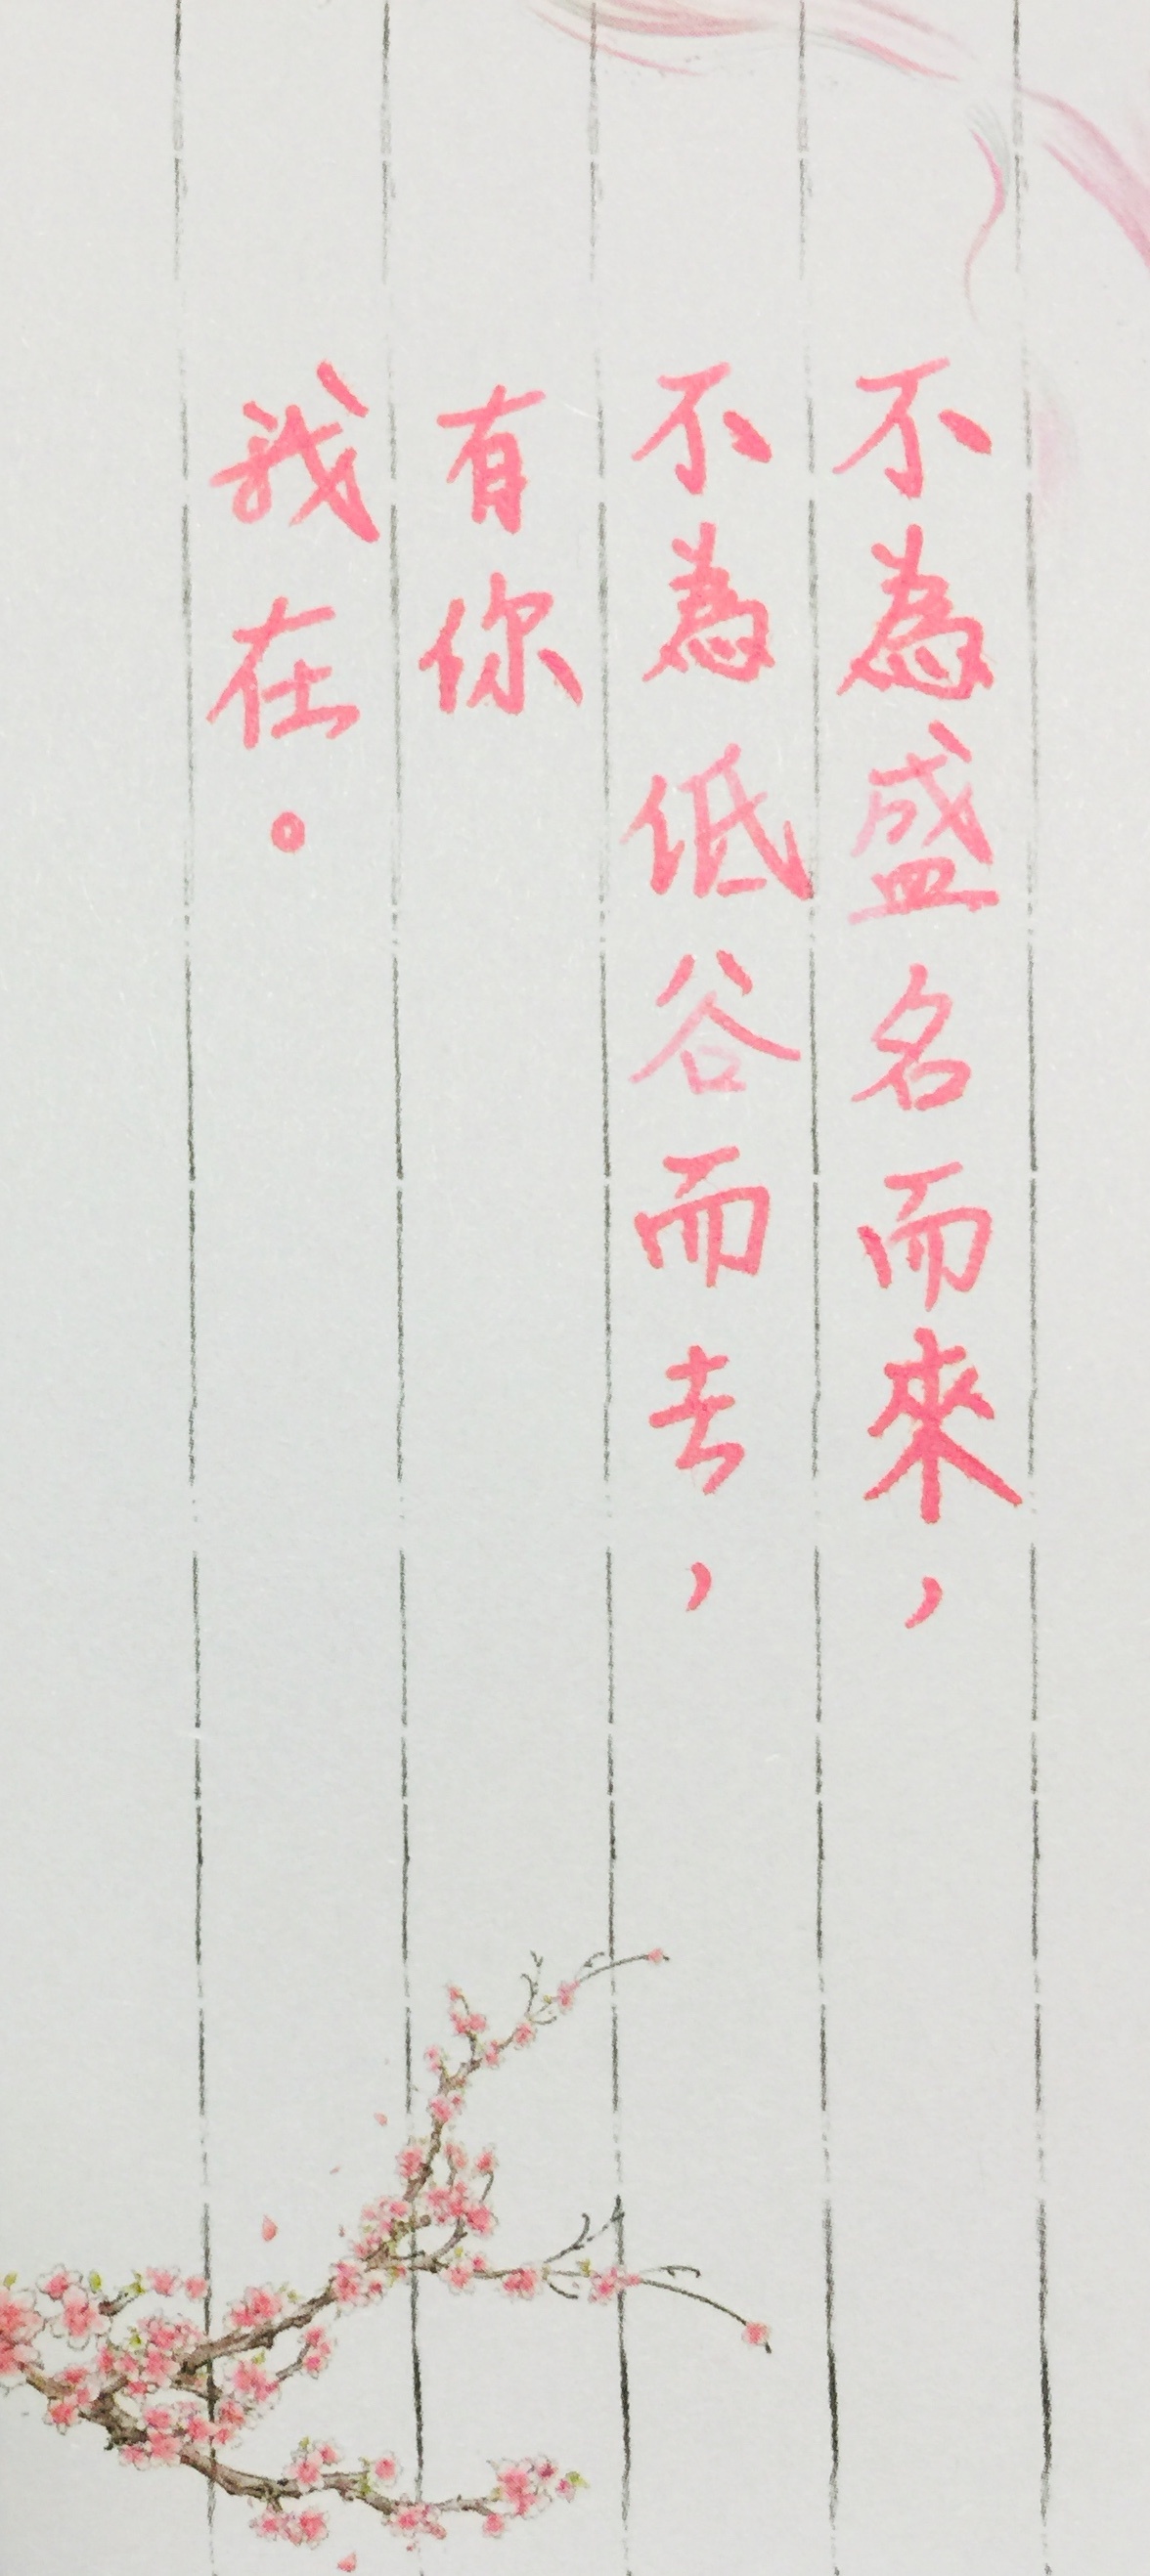 不為盛名而來，
不為低谷而去，
有你
我在。